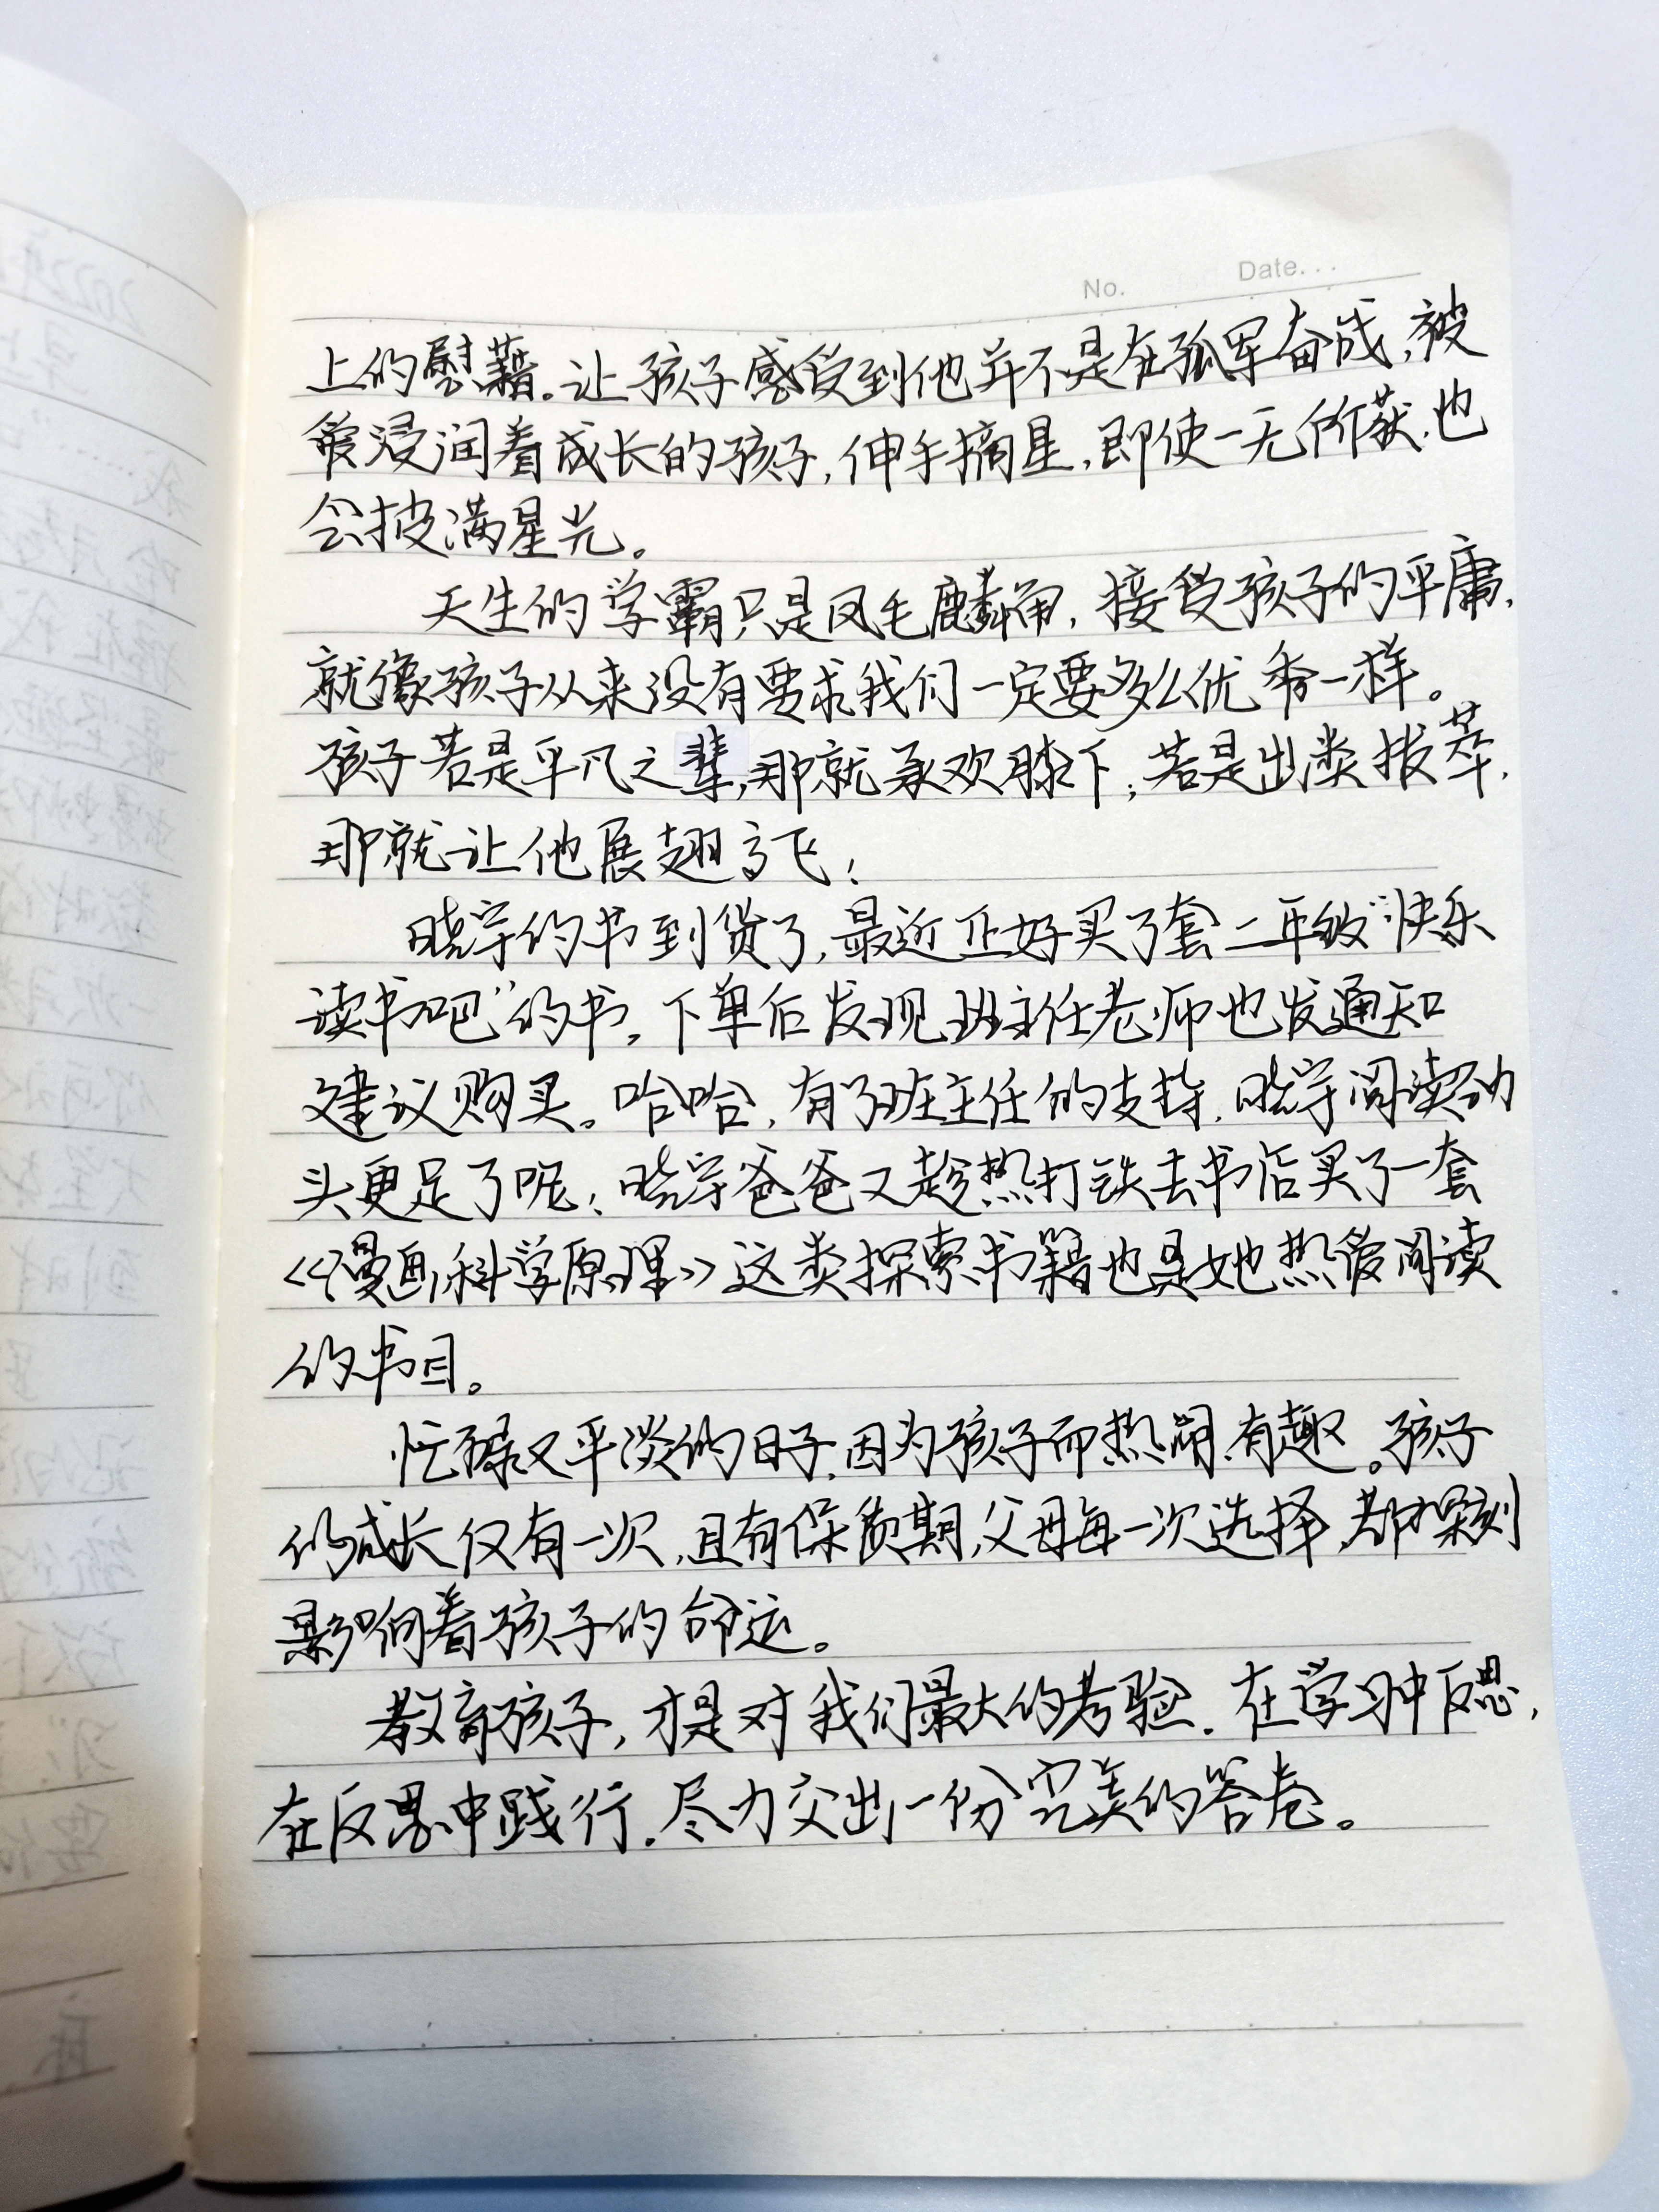 No. Date...
上的慰藉。让孩子感受到他并不是在孤军奋战,被
爱浸润着成长的孩子,伸手摘星,即使一无所获,也
会披满星光。
天生的学霸只是凤毛麟角,接受孩子的平庸,
就像孩子从来没有要求我们一定要多么优秀一样。
孩子若是平凡之辈,那就承欢膝下;若是出类拔萃,
那就让他展翅高飞!
晓宇的书到货了,最近正好买了套二年级“快乐
读书吧”的书。下单后发现班主任老师也发通知
建议购买。哈哈,有了班主任的支持,晓宇阅读劲
头更足了呢!晓宇爸爸又趁热打铁去书店买了一套
《漫画科学原理》这类探索书籍也是她热爱阅读
的书目。
忙碌又平淡的日子,因为孩子而热闹有趣。孩子
的成长仅有一次,且有保质期,父母每一次选择,都深刻
影响着孩子的命运。
教育孩子,才是对我们最大的考验。在学习中反思,
在反思中践行。尽力交出一份完美的答卷。